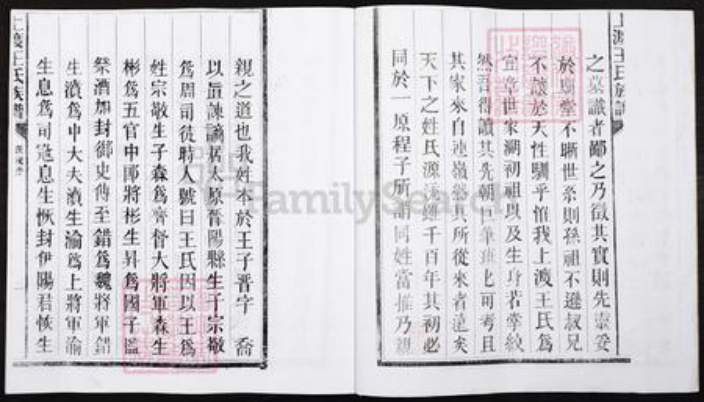 上渡王氏族譜
之墓識者鄙之乃徵其實則先靈妥
於廟堂不晰世系則孫祖不遜叔兄
不讓於天性馴乎怕我上渡王氏為
宜章世家溯初祖以及生身若掌紋
然吾得讀其先朝 筆班 可考且
其家來自連嶺 其所從來者遠矣
天下之姓氏源流雖千百年其初必
同於一原程子所謂同姓當推乃親
親之道也我姓本於王子晉字 喬
以旨諫謫居太原晉陽縣生子宗敬
為周司徒時人號曰王氏因以王為
姓宗敬生子森為齊督大將軍森生
彬為五官中郎將彬生昇為國子監
祭酒加封御史傅至錯為魏將軍錯
生濆為中大夫濆生渝為上將軍渝
生息為司寇息生恢封伊陽君恢生
上渡王氏族譜
FamilySearch